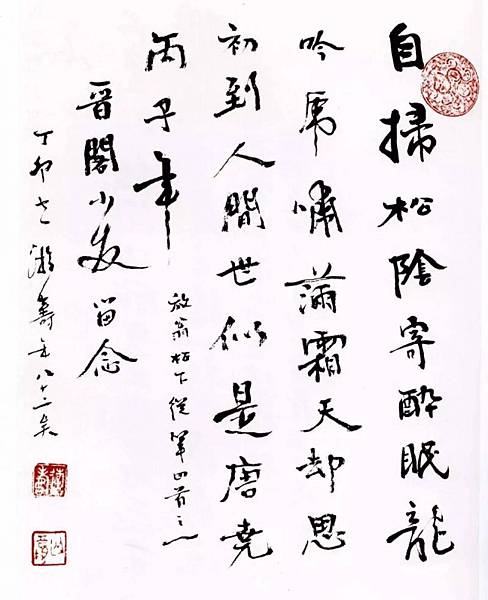 自掃松陰寄醉眠龍
吟虎嘯滿霜天却思
初到人間世似是唐堯
丙子年
放翁松下從筆四首之一
晋閣少友留念
丁卯 游壽年八十二矣